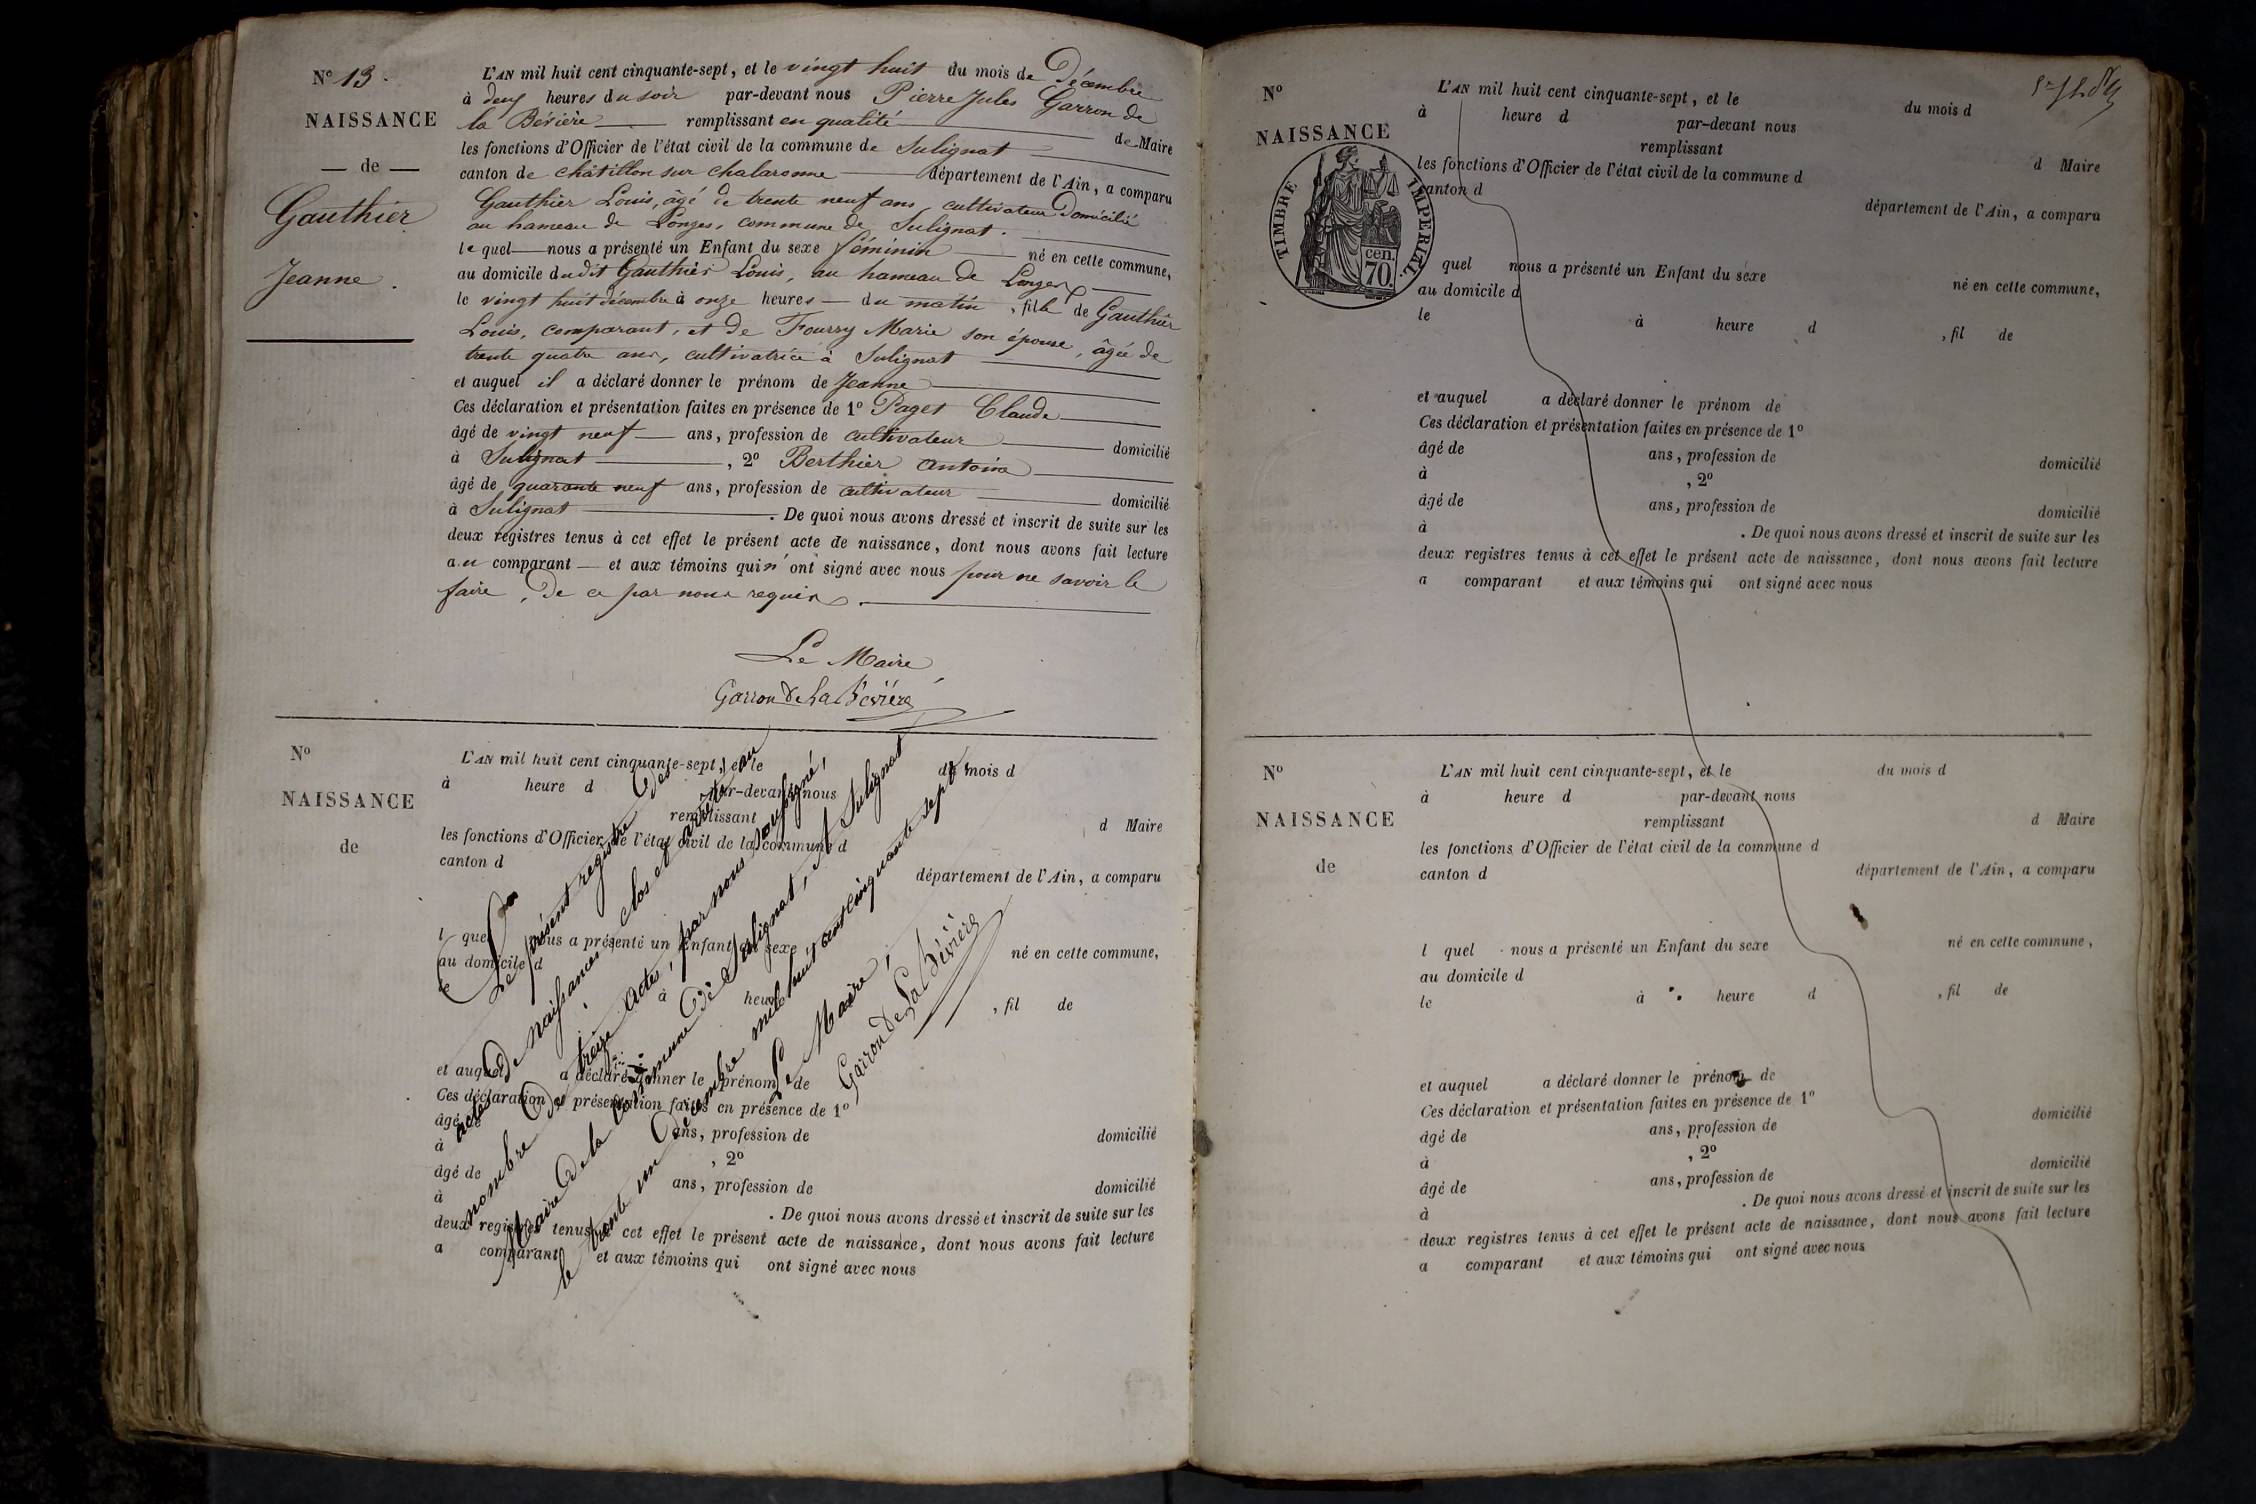 N° 13.
NAISSANCE
— de —
Gauthier
Jeanne.
L'AN mil huit cent cinquante-sept, et le vingt huit du mois de Décembre
à deux heures du soir par-devant nous Pierre Jules Garron de
la Bévière remplissant en qualité de Maire
les fonctions d'Officier de l'état civil de la commune de Sulignat
canton de châtillon sur chalaronne département de l'Ain, a comparu
Gauthier Louis, âgé de trente neuf ans, cultivateur domicilié
au hameau de Longes, commune de Sulignat.
le quel nous a présenté un Enfant du sexe féminin né en cette commune,
au domicile dudit Gauthier Louis, au hameau de Longes
le vingt huit décembre à onze heures du matin, fille de Gauthier
Louis, comparant, et de Fourry Marie son épouse, âgée de
trente quatre ans, cultivatrice à Sulignat
et auquel il a déclaré donner le prénom de Jeanne
Ces déclaration et présentation faites en présence de 1° Paget Claude
âgé de vingt neuf ans, profession de cultivateur domicilié
à Sulignat, 2° Berthier Antoine
âgé de quarante neuf ans, profession de cultivateur domicilié
à Sulignat. De quoi nous avons dressé et inscrit de suite sur les
deux registres tenus à cet effet le présent acte de naissance, dont nous avons fait lecture
au comparant et aux témoins qui n'ont signé avec nous pour ne savoir le
faire, de ce par nous requis.
Le Maire
Garron De La Bévière
N°
NAISSANCE
de
L'AN mil huit cent cinquante-sept, et le du mois d
à heure d par-devant nous
remplissant d Maire
les fonctions d'Officier de l'état civil de la commune d
canton d département de l'Ain, a comparu
l quel nous a présenté un Enfant du sexe né en cette commune,
au domicile d
le à heure , fil de
et auquel a déclaré donner le prénom de
Ces déclaration et présentation faites en présence de 1°
âgé de ans, profession de domicilié
à , 2°
âgé de ans, profession de domicilié
à . De quoi nous avons dressé et inscrit de suite sur les
deux registres tenus à cet effet le présent acte de naissance, dont nous avons fait lecture
a comparant et aux témoins qui ont signé avec nous
Le présent registre des
actes de naissances clos et arrêté au
nombre de treize actes, par nous soussigné,
Maire de la commune de Sulignat, à Sulignat
le trente un Décembre mil huit cent cinquante sept
Le Maire,
Garron De La Bévière
N°
NAISSANCE
TIMBRE IMPERIAL.
cen.
70.
L'AN mil huit cent cinquante-sept, et le du mois d
à heure d par-devant nous
remplissant d Maire
les fonctions d'Officier de l'état civil de la commune d
canton d département de l'Ain, a comparu
quel nous a présenté un Enfant du sexe né en cette commune,
au domicile d
le à heure d , fil de
et auquel a déclaré donner le prénom de
Ces déclaration et présentation faites en présence de 1°
âgé de ans, profession de domicilié
à , 2°
âgé de ans, profession de domicilié
à . De quoi nous avons dressé et inscrit de suite sur les
deux registres tenus à cet effet le présent acte de naissance, dont nous avons fait lecture
a comparant et aux témoins qui ont signé avec nous
N°
NAISSANCE
de
L'AN mil huit cent cinquante-sept, et le du mois d
à heure d par-devant nous
remplissant d Maire
les fonctions d'Officier de l'état civil de la commune d
canton d département de l'Ain, a comparu
l quel nous a présenté un Enfant du sexe né en cette commune,
au domicile d
le à heure d , fil de
et auquel a déclaré donner le prénom de
Ces déclaration et présentation faites en présence de 1°
âgé de ans, profession de domicilié
à , 2°
âgé de ans, profession de domicilié
à . De quoi nous avons dressé et inscrit de suite sur les
deux registres tenus à cet effet le présent acte de naissance, dont nous avons fait lecture
a comparant et aux témoins qui ont signé avec nous